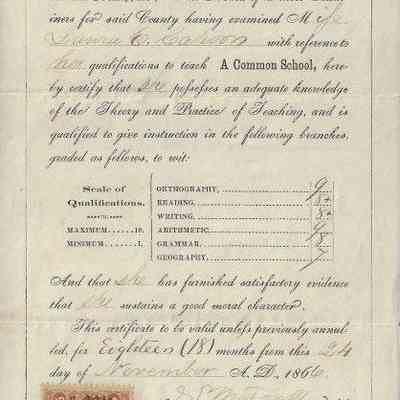 iners for said County having examined Miss
with reference to
her qualifications to teach A Common School, here-
by certify that she possesses an adequate knowledge
of the Theory and Practice of Teaching, and is
qualified to give instruction in the following branches,
graded as follows, to wit:
Scale of
Qualifications.
MAXIMUM......10.
MINIMUM......1.
ORTHOGRAPHY, 9
READING, 8+
WRITING, 8+
ARITHMETIC, 9
GRAMMAR, 8
GEOGRAPHY, 7
And that she has furnished satisfactory evidence
that she sustains a good moral character.
This certificate to be valid unless previously annul-
led, for Eighteen (18) months from this 24
day of November A. D. 1866.